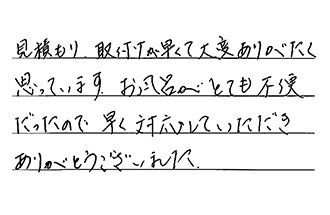 見積もり、取付けが早くて大変ありがたく
思っています。お風呂がとても不便
だったので早く対応していただき
ありがとうございました。